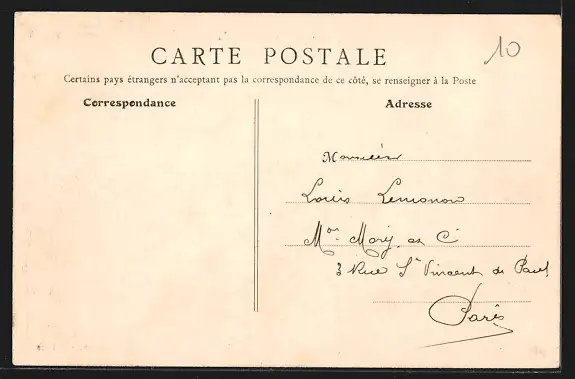 CARTE POSTALE
10
Certains pays étrangers n'acceptant pas la correspondance de ce côté, se renseigner à la Poste
Correspondance
Adresse
Monsieur
Louis
Mon Mory & Cie
3 Rue St Vincent de Paul
Paris